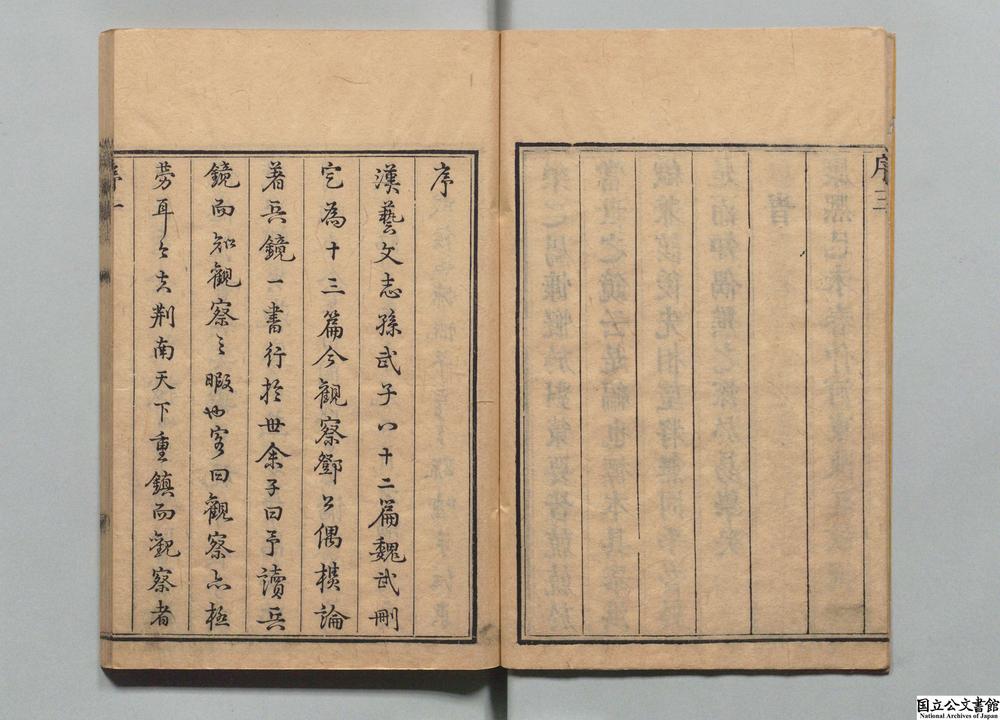 序三
序
漢藝文志孫武子八十二篇魏武刪
定為十三篇今觀察鄧公偶撰論
著兵鏡一書行於世余子曰予讀兵
鏡而知觀察之暇也客曰觀察亦極
勞耳今夫荊南天下重鎮而觀察者
序一
国立公文書館
National Archives of Japan